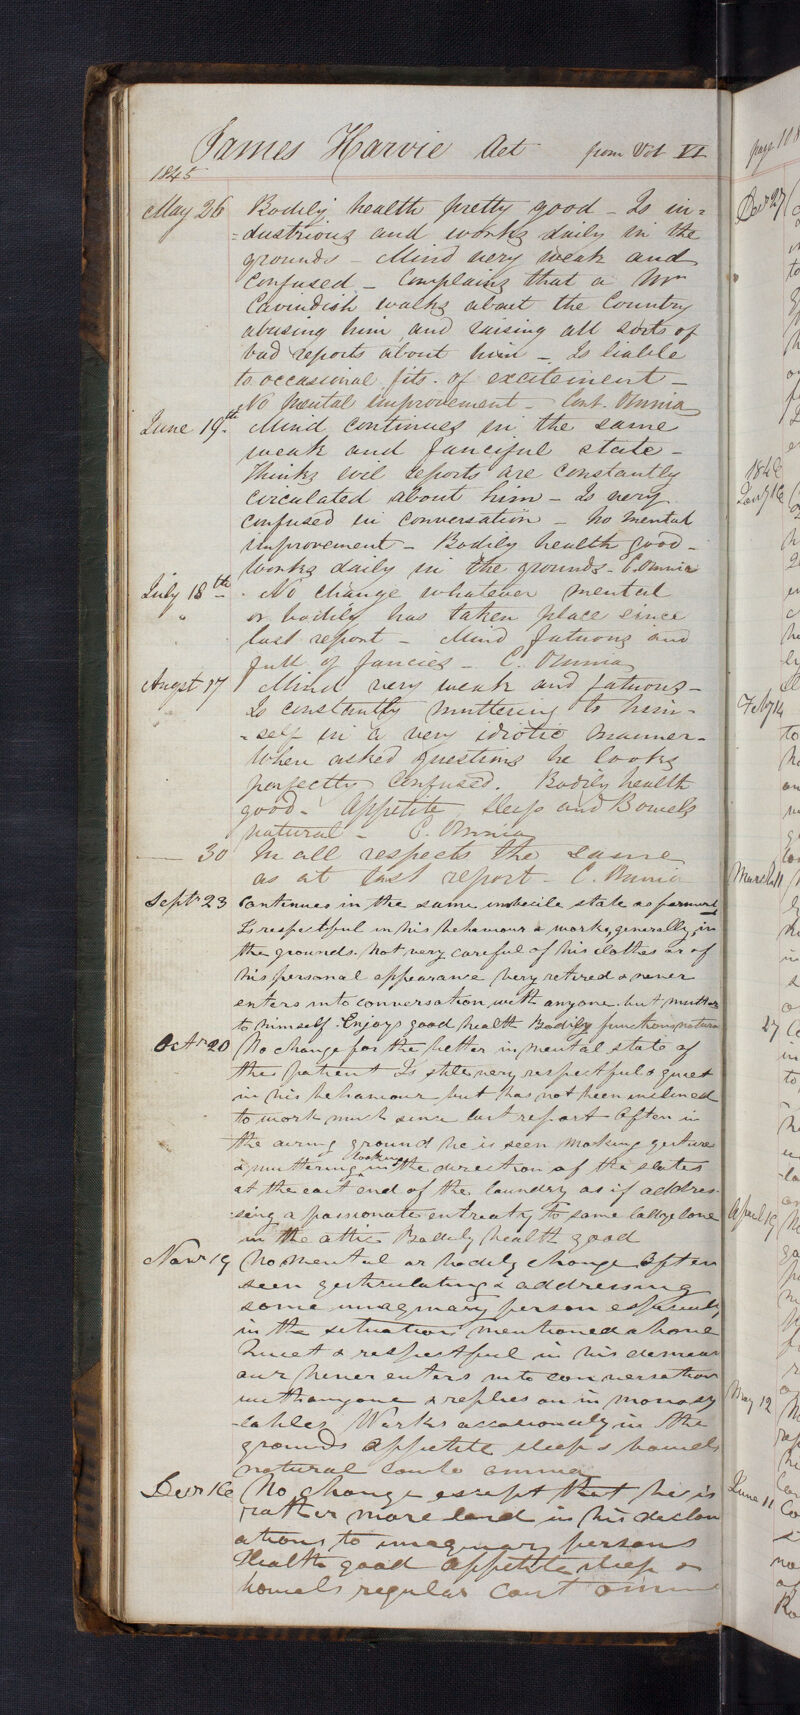 James Harvie Aet from Vol VI
1845
May 26 Bodily health pretty good – Is in=
=dustrious and works daily in the
grounds – Mind very weak and
confused – Complains that a Mrs
Cavindish walks about the Country
abusing him and raising all sorts of
bad reports about him – Is liable
to occasional fits of excitement –
No mental improvement – Cont. Omnia
June 19th Mind continues in the same
weak and fanciful state –
Thinks evil reports are constantly
circulated about him – Is very
confused in conversation – No mental
improvement – Bodily health good –
Works daily in the grounds – C. Omnia
July 18th No change whatever mental
" or bodily has taken place since
last report – Mind fatuous and
full of fancies – C. Omnia
Augst 17 Mind very weak and fatuous –
Is constantly muttering to him-
=self in a very idiotic manner –
When asked questions he looks
perfectly confused. Bodily health
good – Appetite sleep and Bowels
natural – C. Omnia
— 30 In all respects the same
as at last report – C. Omnia
Septr 23 Continues in the same imbecile state as formerly
Is respectful in his behaviour & works generally in
the grounds. Not very careful of his clothes or of
his personal appearance Very retired & never
enters into conversation with anyone but mutters
to himself. Enjoys good health Bodily functions natura
Octr 20 No change for the better in mental state of
the patient Is still very respectful & quiet
in his behaviour but has not been inclined
to work much since last report Often in
the airing ground he is seen making gestures
& muttering looking in the direction of the slates
at the east end of the laundry as if addres-
sing a passionate entreaty to some ladye love
in the attic Bodily health good
Novr 19 No mental or bodily change Often
seen gesticulating & addressing
some imaginary person especially
in the situation mentioned above
Quiet & respectful in his demean
our never enters into conversation
with anyone & replies on in monosy
-lables Works occasionally in the
grounds appetite sleep & bowels
natural conto omnia
Decr 16 No change except that he is
rather more loud in his declam
ations to imaginary persons
Health good appetite sleep &
bowels regular Cont omnia
page 108
Decr 27
1846
Jany 16
Feby 14
March 11
27
April 19
May 12
June 11